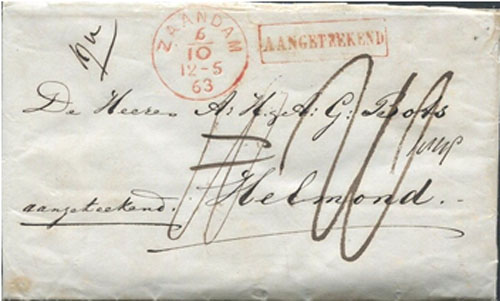 ZAANDAM
6
10
12-5
63
AANGETEEKEND
De Heeren A: H: & A: G:
Helmond.
aangeteekend.